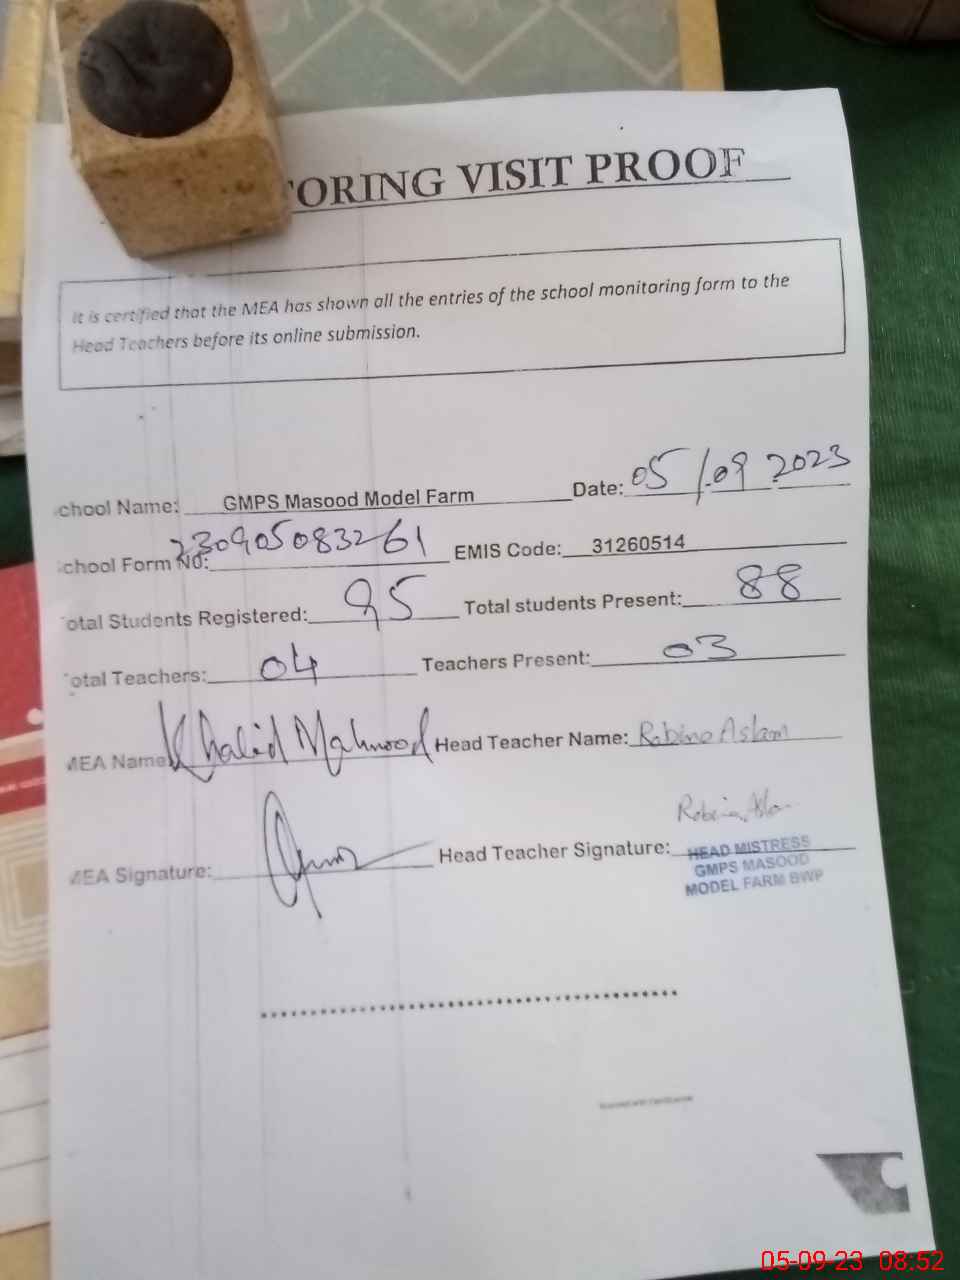 TORING VISIT PROOF
It is certified that the MEA has shown all the entries of the school monitoring form to the
Head Teachers before its online submission.
chool Name: GMPS Masood Model Farm Date: 05/.09 2023
chool Form No: 230905083261 EMIS Code: 31260514
otal Students Registered: 95 Total students Present: 88
otal Teachers: 04 Teachers Present: 03
MEA Name Khalid Mahmood Head Teacher Name: Robina Aslam
Robina Aslam
MEA Signature: Head Teacher Signature: HEAD MISTRESS
GMPS MASOOD
MODEL FARM BWP
05-09-23 08:52